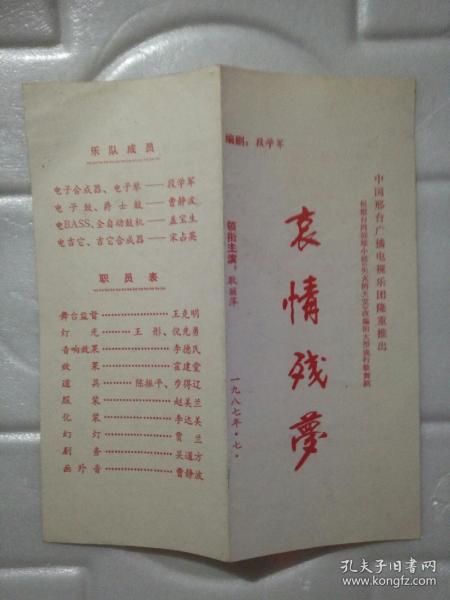 乐队成员
电子合成器、电子琴——段学军
电子鼓、爵士鼓——曹静波
电BASS、全自动鼓机——孟宝生
电吉它、吉它合成器——宋占英
职员表
舞台监督………………王克明
灯光………王彤、倪先勇
音响效果………………李德民
效果………………霍建堂
道具………陈振平、步得辽
服装………………赵美兰
化装………………李达美
幻灯………………贾兰
剧务………………吴道方
画外音………………曹静波
编剧：段学军
中国邢台广播电视乐团隆重推出
哀情残夢
领衔主演：耿丽萍
一九八七年·七·
孔夫子旧书网
www.kongfz.com